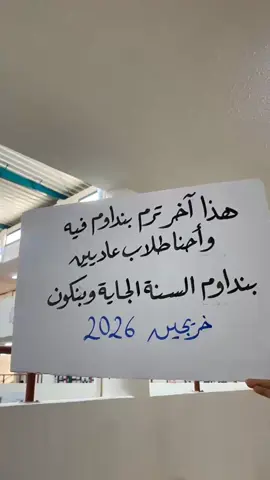 هذا آخر ترم بنداوم فيه
وأحنا طلاب عاديين
بنداوم السنة الجاية وبنكون
خريجين 2026